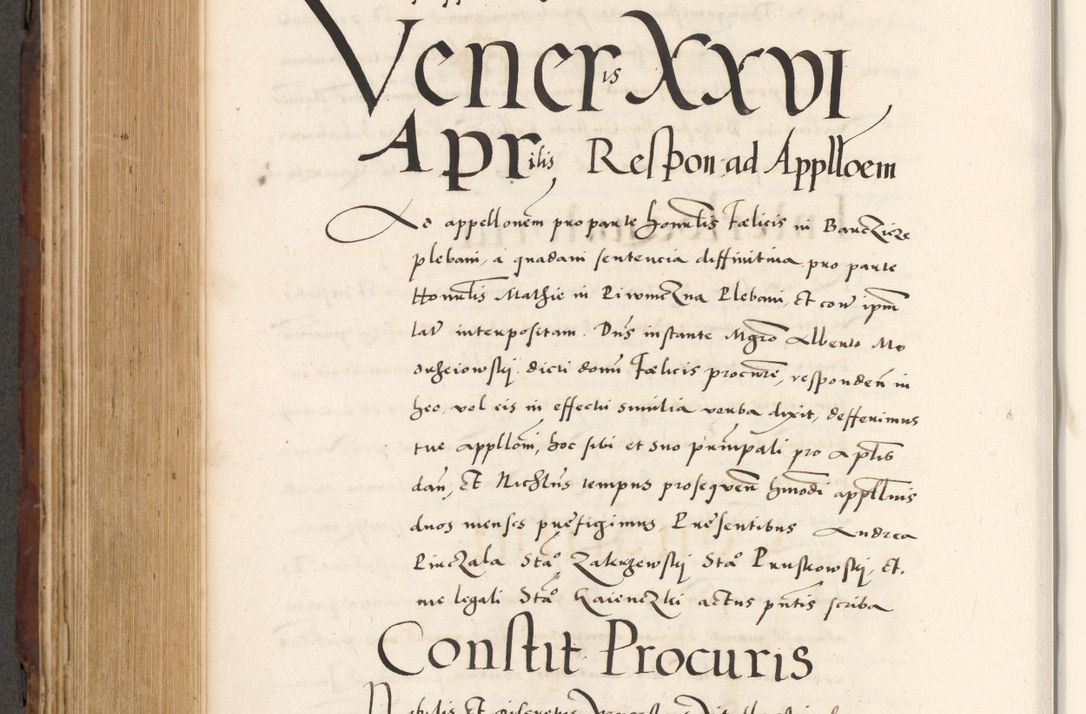 Veneris XXVI
Aprilis, Respon ad Applloem
Ad appellonem pro parte honrlis Fœlicis in Barczicze
plebani, a quadam sententia diffinitiva pro parte
Honrlis Mathie in Piwniczna Plebani, et contra ipsm
lat interpositam. Dns instante Mgro Alberto Mo
drzeiowskij dicti domi Fœlicis procure, responden in
hec, vel eis in effectu similia verba dixit, defferimus
tue applloni, hoc sibi et suo prinpali pro aplis
dan, Et Nichlns tempus prosequen hmodi applnis
duos menses prefigimus, Presentibus Andrea
Pieczala Sta° Zakrzewskij Sta° Pruskowskij, et.
me legali Sta° Kaienczki actus pntis scriba
Constit Procuris